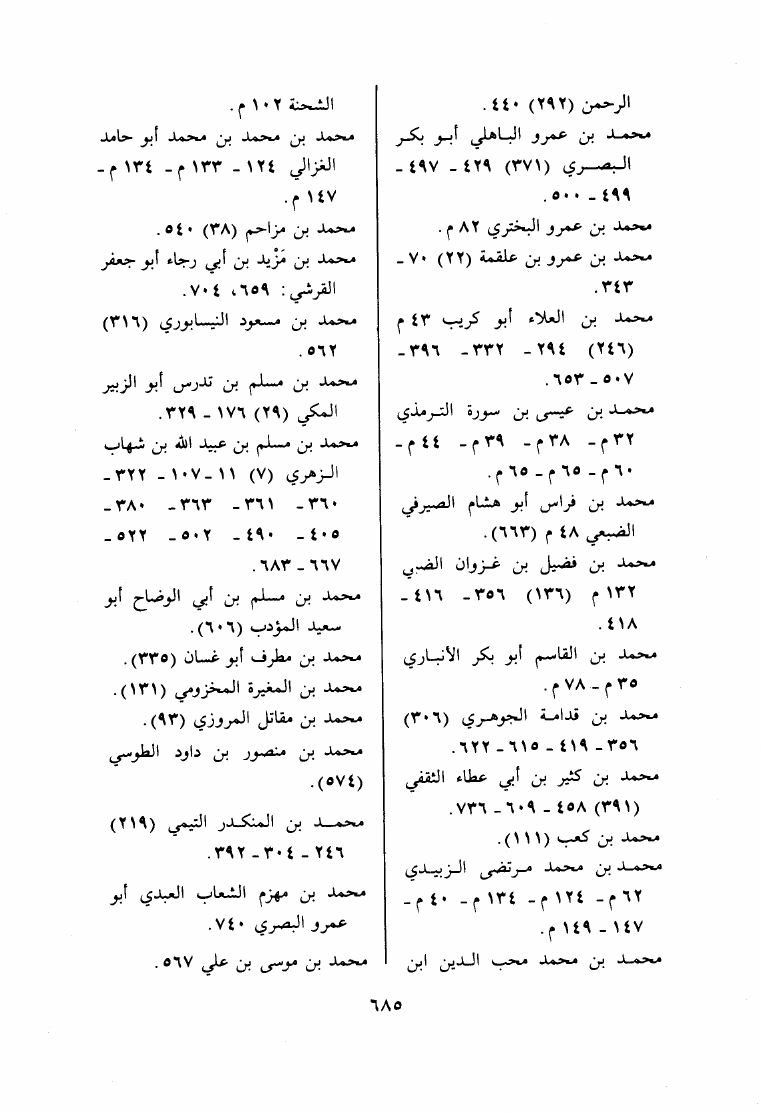 الرحمن (٢٩٢) ٤٤٠.
محمد بن عمرو الباهلي أبو بكر
البصري (٣٧١) ٤٢٩ - ٤٩٧ -
٤٩٩ - ٥٠٠.
محمد بن عمرو البختري ٨٢ م.
محمد بن عمرو بن علقمة (٢٢) ٧٠ -
٣٤٣.
محمد بن العلاء أبو كريب ٤٣ م
(٢٤٦) ٢٩٤ - ٣٣٢ - ٣٩٦ -
٥٠٧ - ٦٥٣.
محمد بن عيسى بن سورة الترمذي
٣٢ م - ٣٨ م - ٣٩ م - ٤٤ م -
٦٠ م - ٦٥ م - ٦٥ م.
محمد بن فراس أبو هشام الصيرفي
الضبعي ٤٨ م (٦٦٣).
محمد بن فضيل بن غزوان الضبي
١٣٢ م (١٣٦) ٣٥٦ - ٤١٦ -
٤١٨.
محمد بن القاسم أبو بكر الأنباري
٣٥ م - ٧٨ م.
محمد بن قدامة الجوهري (٣٠٦)
٣٥٦ - ٤١٩ - ٦١٥ - ٦٢٢.
محمد بن كثير بن أبي عطاء الثقفي
(٣٩١) ٤٥٨ - ٦٠٩ - ٧٣٦.
محمد بن كعب (١١١).
محمد بن محمد مرتضى الزبيدي
٦٢ م - ١٢٤ م - ١٣٤ م - ٤٠ م -
١٤٧ - ١٤٩ م.
محمد بن محمد محب الدين ابن
الشحنة ١٠٢ م.
محمد بن محمد بن محمد أبو حامد
الغزالي ١٢٤ - ١٣٣ م - ١٣٤ م -
١٤٧ م.
محمد بن مزاحم (٣٨) ٥٤٠.
محمد بن مَزْيد بن أبي رجاء أبو جعفر
القرشي: ٦٥٩، ٧٠٤.
محمد بن مسعود النيسابوري (٣١٦)
٥٦٢.
محمد بن مسلم بن تدرس أبو الزبير
المكي (٢٩) ١٧٦ - ٣٢٩.
محمد بن مسلم بن عبيد الله بن شهاب
الزهري (٧) ١١ - ١٠٧ - ٣٢٢ -
٣٦٠ - ٣٦١ - ٣٦٣ - ٣٨٠ -
٤٠٥ - ٤٩٠ - ٥٠٢ - ٥٢٢ -
٦٦٧ - ٦٨٣.
محمد بن مسلم بن أبي الوضاح أبو
سعيد المؤدب (٦٠٦).
محمد بن مطرف أبو غسان (٣٣٥).
محمد بن المغيرة المخزومي (١٣١).
محمد بن مقاتل المروزي (٩٣).
محمد بن منصور بن داود الطوسي
(٥٧٤).
محمد بن المنكدر التيمي (٢١٩)
٢٤٦ - ٣٠٤ - ٣٩٢.
محمد بن مهزم الشعاب العبدي أبو
عمرو البصري ٧٤٠.
محمد بن موسى بن علي ٥٦٧.
٦٨٥